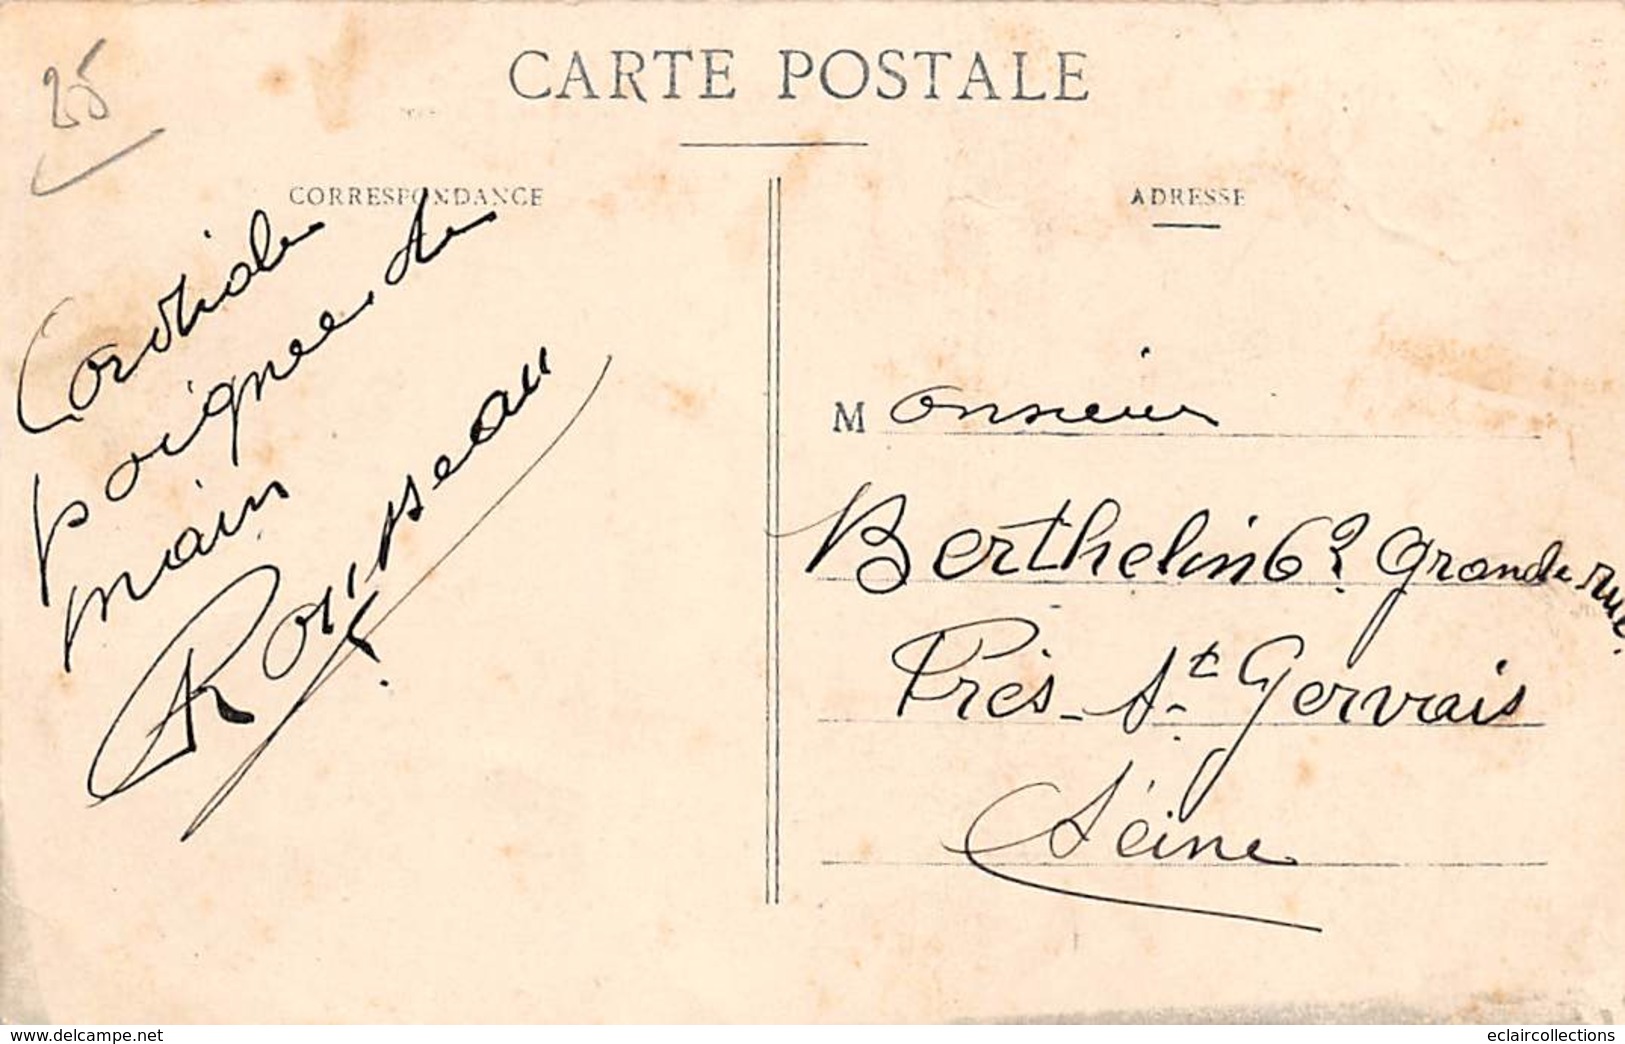 25
CARTE POSTALE
CORRESPONDANCE
Cordiale
poignée de
main
Rousseau
ADRESSE
Monsieur
Berthelin 62 Grande rue.
Près-St Gervais
Seine
www.delcampe.net
eclaircollections